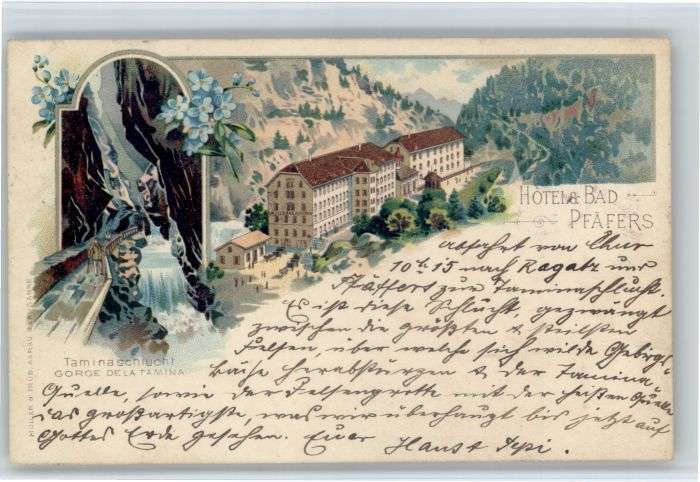 HÔTEL & BAD
PFÄFERS
Taminaschlucht
GORGE DE LA TAMINA
Abfahrt von Chur
10 h. 15 nach Ragatz und
Pfäffers zur Taminaschlucht.
Es ist diese Schlucht, gezwängt
zwischen die größten & steilsten
Felsen, über welche sich wilde Gebirgs-
bäche herabstürzen & der Tamina-
Quelle, sowie der Felsengrotte mit der heißen Quelle
das großartigste, was wir überhaupt bis jetzt auf
Gottes Erde gesehen. Euer Hans &